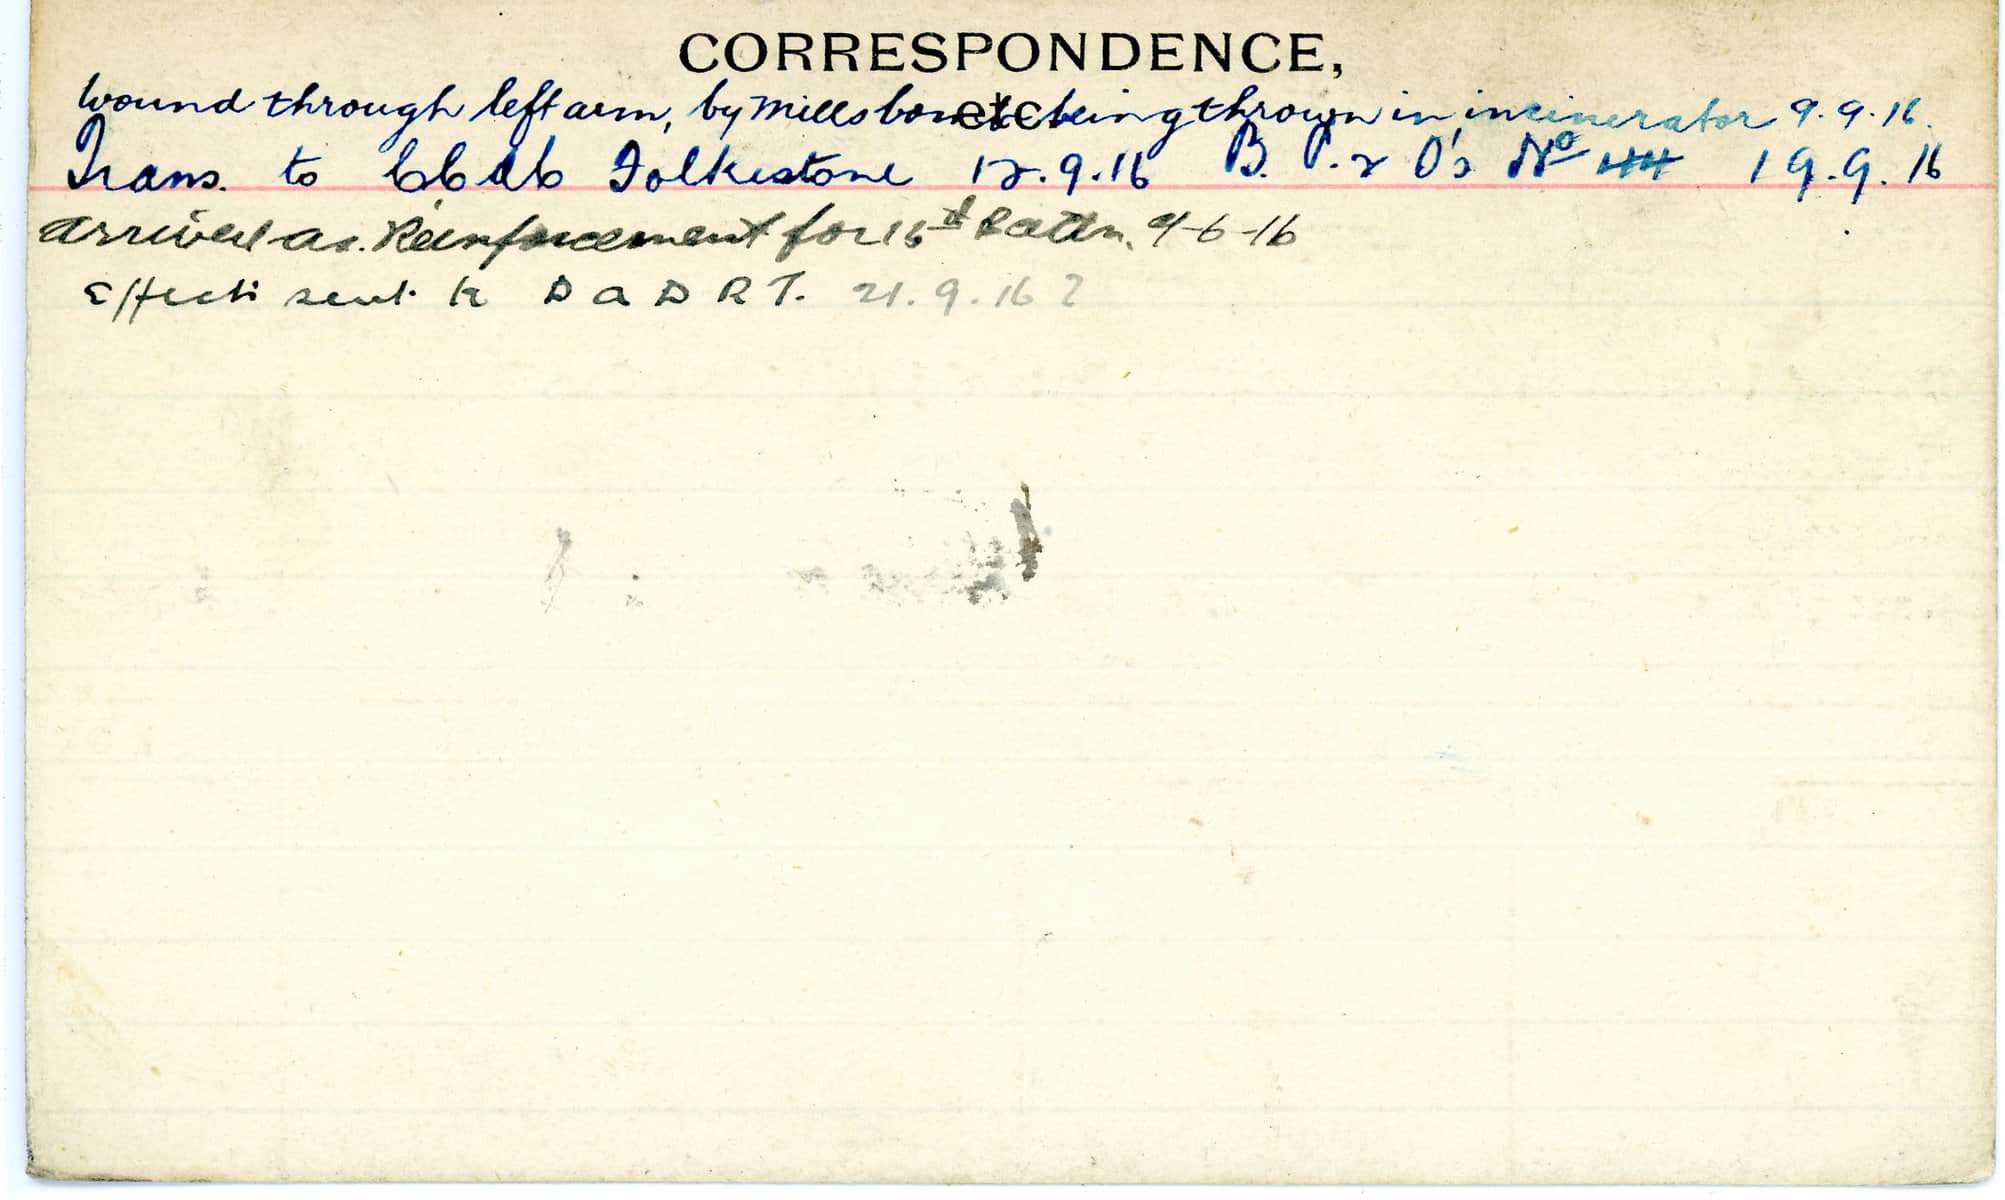 CORRESPONDENCE,
etc.
Wound through left arm, by Mills bomb being thrown in incinerator 9.9.16.
Trans. to CCAC Folkestone 12.9.16 B. P. & O's No 44 19.9.16
Arrived as Reinforcement for 16 Battn. 9-6-16
Effects sent to D A D R T. 21.9.16 ?